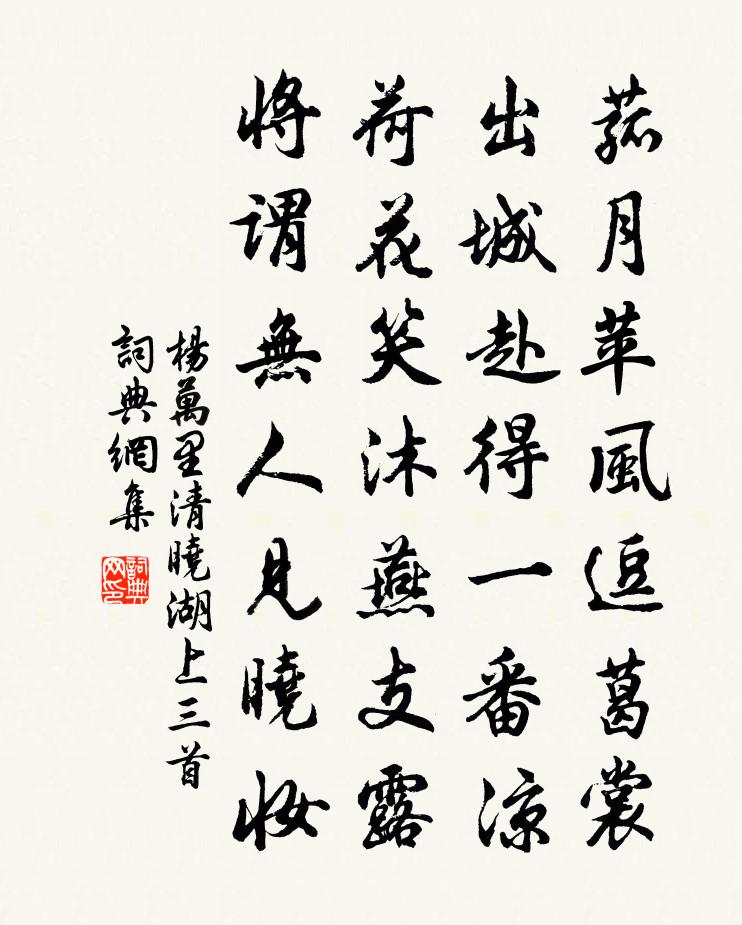 菰月苹風逗葛裳
出城赴得一番涼
荷花笑沐燕支露
将谓無人見曉妆
楊萬里清曉湖上三首
詞典網集
詞典网印